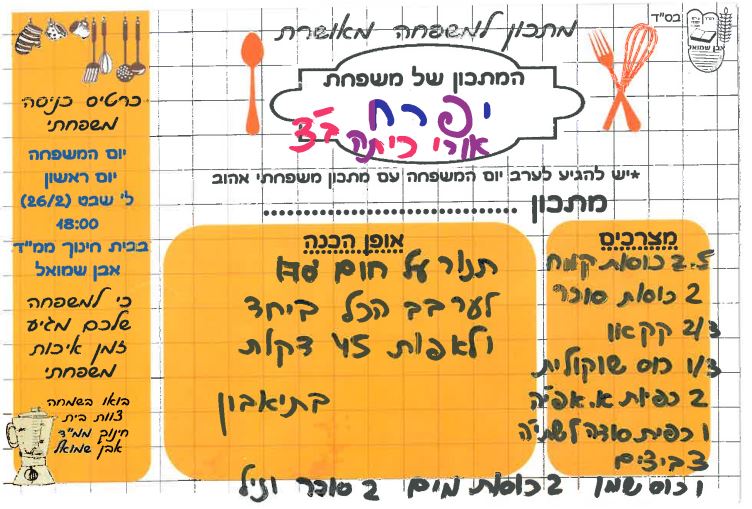 בס"ד
מתכון למשפחה מאושרת
אבן שמואל
המתכון של משפחת
יפרח
אורי כיתה ב'3
*יש להגיע לערב יום המשפחה עם מתכון משפחתי אהוב
מתכון ................................
כרטיס כניסה
משפחתי
יום המשפחה
יום ראשון
ל' שבט (26/2)
18:00
בבית חינוך ממ"ד
אבן שמואל
כי למשפחה
שלכם מגיע
זמן איכות
משפחתי
בואו בשמחה
צוות בית
חינוך ממ"ד
אבן שמואל
מצרכים
2.5 כוסות קמח
2 כוסות סוכר
2/3 קקאו
1/3 כוס שוקולית
2 כפיות א.אפיה
1 כפית סודה לשתיה
3 ביצים
1 כוס שמן 2 כוסות מים 2 סוכר וניל
אופן הכנה
תנור על חום 170
לערבב הכל ביחד
ולאפות 45 דקות
בתיאבון